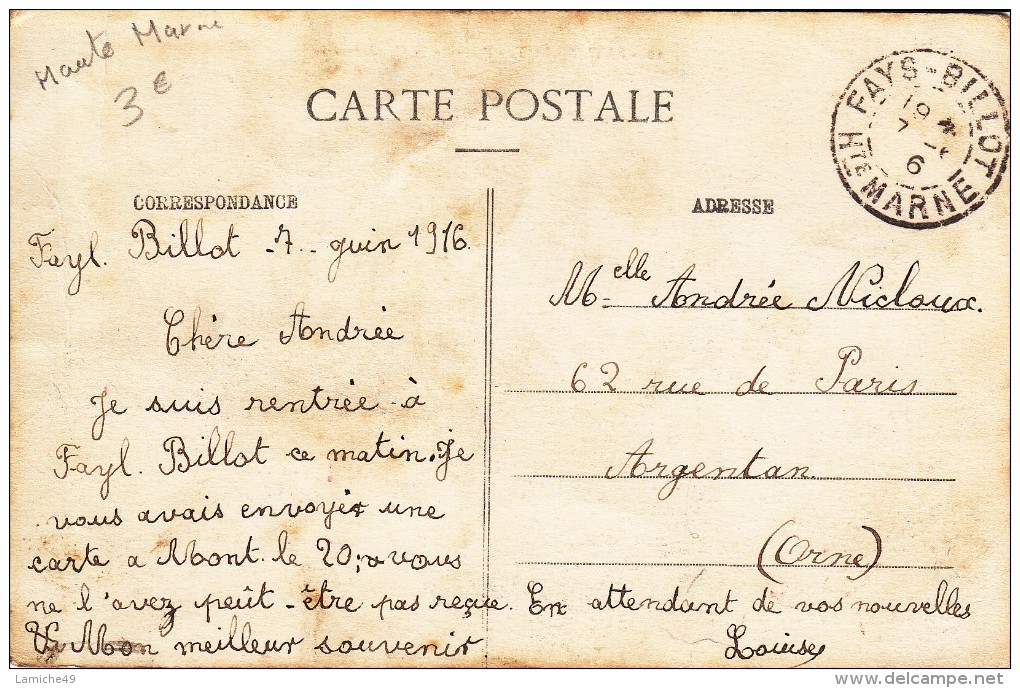 Haute Marne
3€
CARTE POSTALE
FAYS-BILLOT
HTE MARNE
CORRESPONDANCE
Fayl. Billot -7- juin 1916.
Chère Andrée
Je suis rentrée à
Fayl. Billot ce matin. Je
vous avais envoyée une
carte a Mont. le 20; vous
ne l'avez peût-être pas reçue. En attendant de vos nouvelles
Mon meilleur souvenir
Louise
ADRESSE
Melle Andrée Nicloux.
62 rue de Paris
Argentan.
(Orne)
Lamiche49
delcampe.net